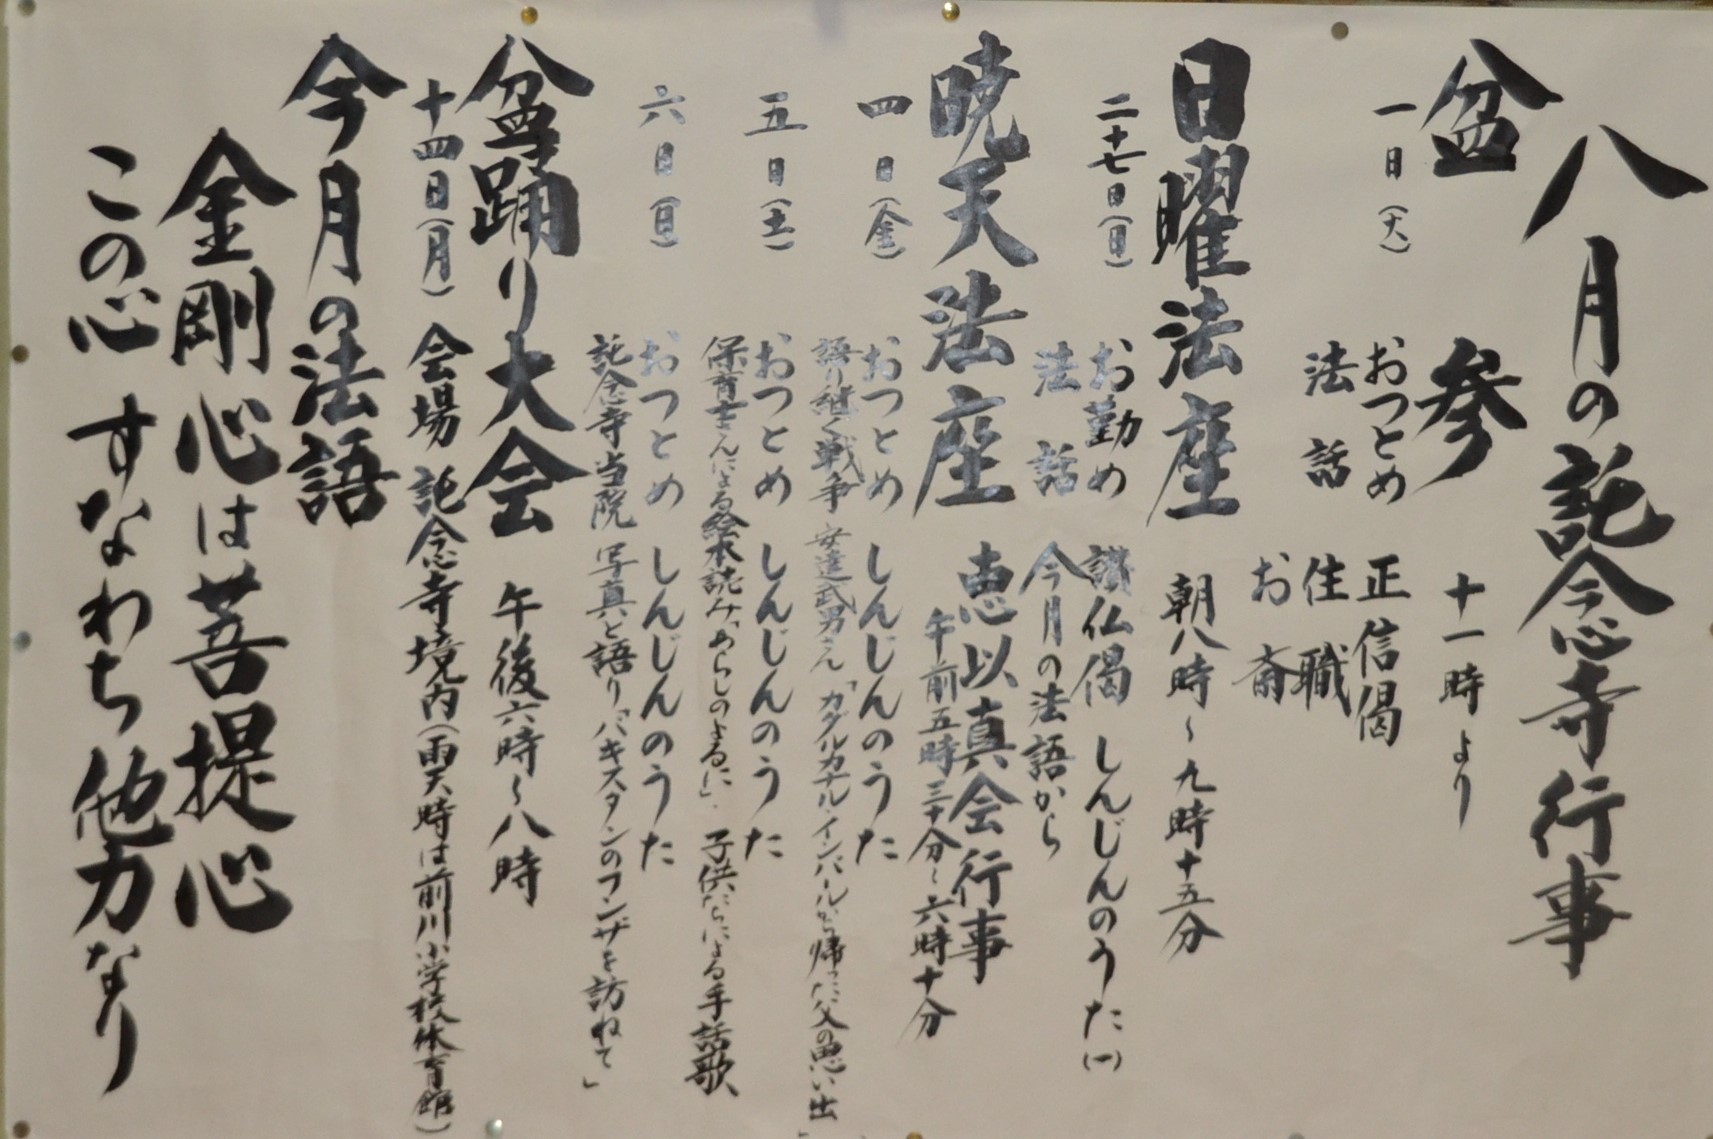 八月の託念寺行事
盆参 十一時より
一日(火) おつとめ 正信偈
法話 住職
お斎
日曜法座 朝八時~九時十五分
二十七日(日) お勤め 讃仏偈 しんじんのうた(一)
法話 今月の法語から
暁天法座 恵以真会行事
午前五時三十分~六時十分
四日(金) おつとめ しんじんのうた
語り継ぐ戦争 安達武男さん「ガダルカナル・インパールから帰った父の思い出」
五日(土) おつとめ しんじんのうた
保育士さんによる絵本読み「あらしのよるに」・子供たちによる手話歌
六日(日) おつとめ しんじんのうた
託念寺当院 写真と語り「パキスタンのフンザを訪ねて」
盆踊り大会 午後六時~八時
十四日(月) 会場 託念寺境内(雨天時は前川小学校体育館)
今月の法語
金剛心は菩提心
この心すなわち他力なり